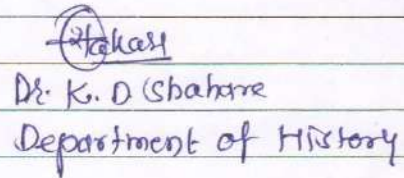 Dr. K. D Shahare
Department of History